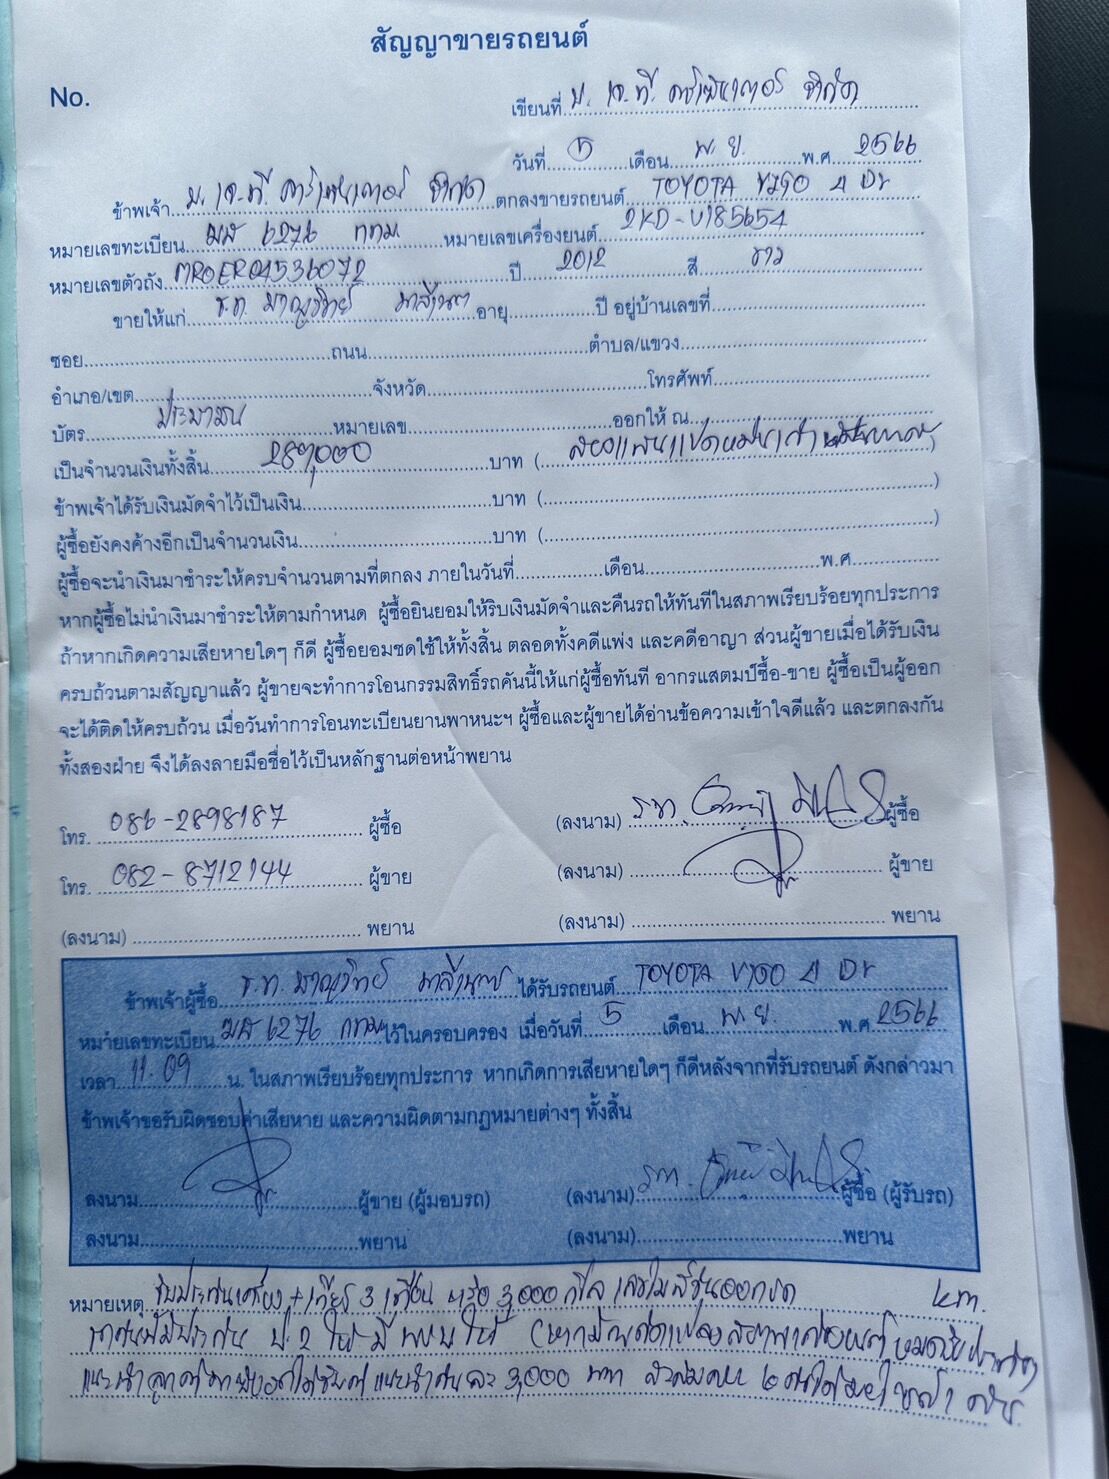 สัญญาขายรถยนต์
No.
เขียนที่ บ. เจ.ที. คาร์เซ็นเตอร์ จำกัด
วันที่ 5 เดือน พ.ย. พ.ศ. 2566
ข้าพเจ้า บ. เจ.ที. คาร์เซ็นเตอร์ จำกัด ตกลงขายรถยนต์ TOYOTA VIGO 4 Dr
หมายเลขทะเบียน 6276 กทม หมายเลขเครื่องยนต์ 2KD-U185654
หมายเลขตัวถัง MROER04536072 ปี 2012 สี ขาว
ขายให้แก่ อายุ ปี อยู่บ้านเลขที่
ซอย ถนน ตำบล/แขวง
อำเภอ/เขต จังหวัด โทรศัพท์
บัตร ประชาชน หมายเลข ออกให้ ณ
เป็นจำนวนเงินทั้งสิ้น 289,000 บาท ( สองแสนแปดหมื่นเก้าพันบาท )
ข้าพเจ้าได้รับเงินมัดจำไว้เป็นเงิน บาท ( )
ผู้ซื้อยังคงค้างอีกเป็นจำนวนเงิน บาท ( )
ผู้ซื้อจะนำเงินมาชำระให้ครบจำนวนตามที่ตกลง ภายในวันที่ เดือน พ.ศ.
หากผู้ซื้อไม่นำเงินมาชำระให้ตามกำหนด ผู้ซื้อยินยอมให้ริบเงินมัดจำและคืนรถให้ทันทีในสภาพเรียบร้อยทุกประการ
ถ้าหากเกิดความเสียหายใดๆ ก็ดี ผู้ซื้อยอมชดใช้ให้ทั้งสิ้น ตลอดทั้งคดีแพ่ง และคดีอาญา ส่วนผู้ขายเมื่อได้รับเงิน
ครบถ้วนตามสัญญาแล้ว ผู้ขายจะทำการโอนกรรมสิทธิ์รถคันนี้ให้แก่ผู้ซื้อทันที อากรแสตมป์ซื้อ-ขาย ผู้ซื้อเป็นผู้ออก
จะได้ติดให้ครบถ้วน เมื่อวันทำการโอนทะเบียนยานพาหนะฯ ผู้ซื้อและผู้ขายได้อ่านข้อความเข้าใจดีแล้ว และตกลงกัน
ทั้งสองฝ่าย จึงได้ลงลายมือชื่อไว้เป็นหลักฐานต่อหน้าพยาน
โทร. 086-2898187 ผู้ซื้อ (ลงนาม) ผู้ซื้อ
โทร. 082-8712144 ผู้ขาย (ลงนาม) ผู้ขาย
(ลงนาม) พยาน (ลงนาม) พยาน
ข้าพเจ้าผู้ซื้อ ได้รับรถยนต์ TOYOTA VIGO 4 Dr
หมายเลขทะเบียน 6276 กทม ไว้ในครอบครอง เมื่อวันที่ 5 เดือน พ.ย. พ.ศ. 2566
เวลา 11.09 น. ในสภาพเรียบร้อยทุกประการ หากเกิดการเสียหายใดๆ ก็ดีหลังจากที่รับรถยนต์ ดังกล่าวมา
ข้าพเจ้าขอรับผิดชอบค่าเสียหาย และความผิดตามกฎหมายต่างๆ ทั้งสิ้น
ลงนาม ผู้ขาย (ผู้มอบรถ) (ลงนาม) ผู้ซื้อ (ผู้รับรถ)
ลงนาม พยาน (ลงนาม) พยาน
หมายเหตุ รับประกันเครื่อง + เกียร์ 3 เดือน หรือ 3,000 กิโล km.
ป.2 ให้
3,000 บาท